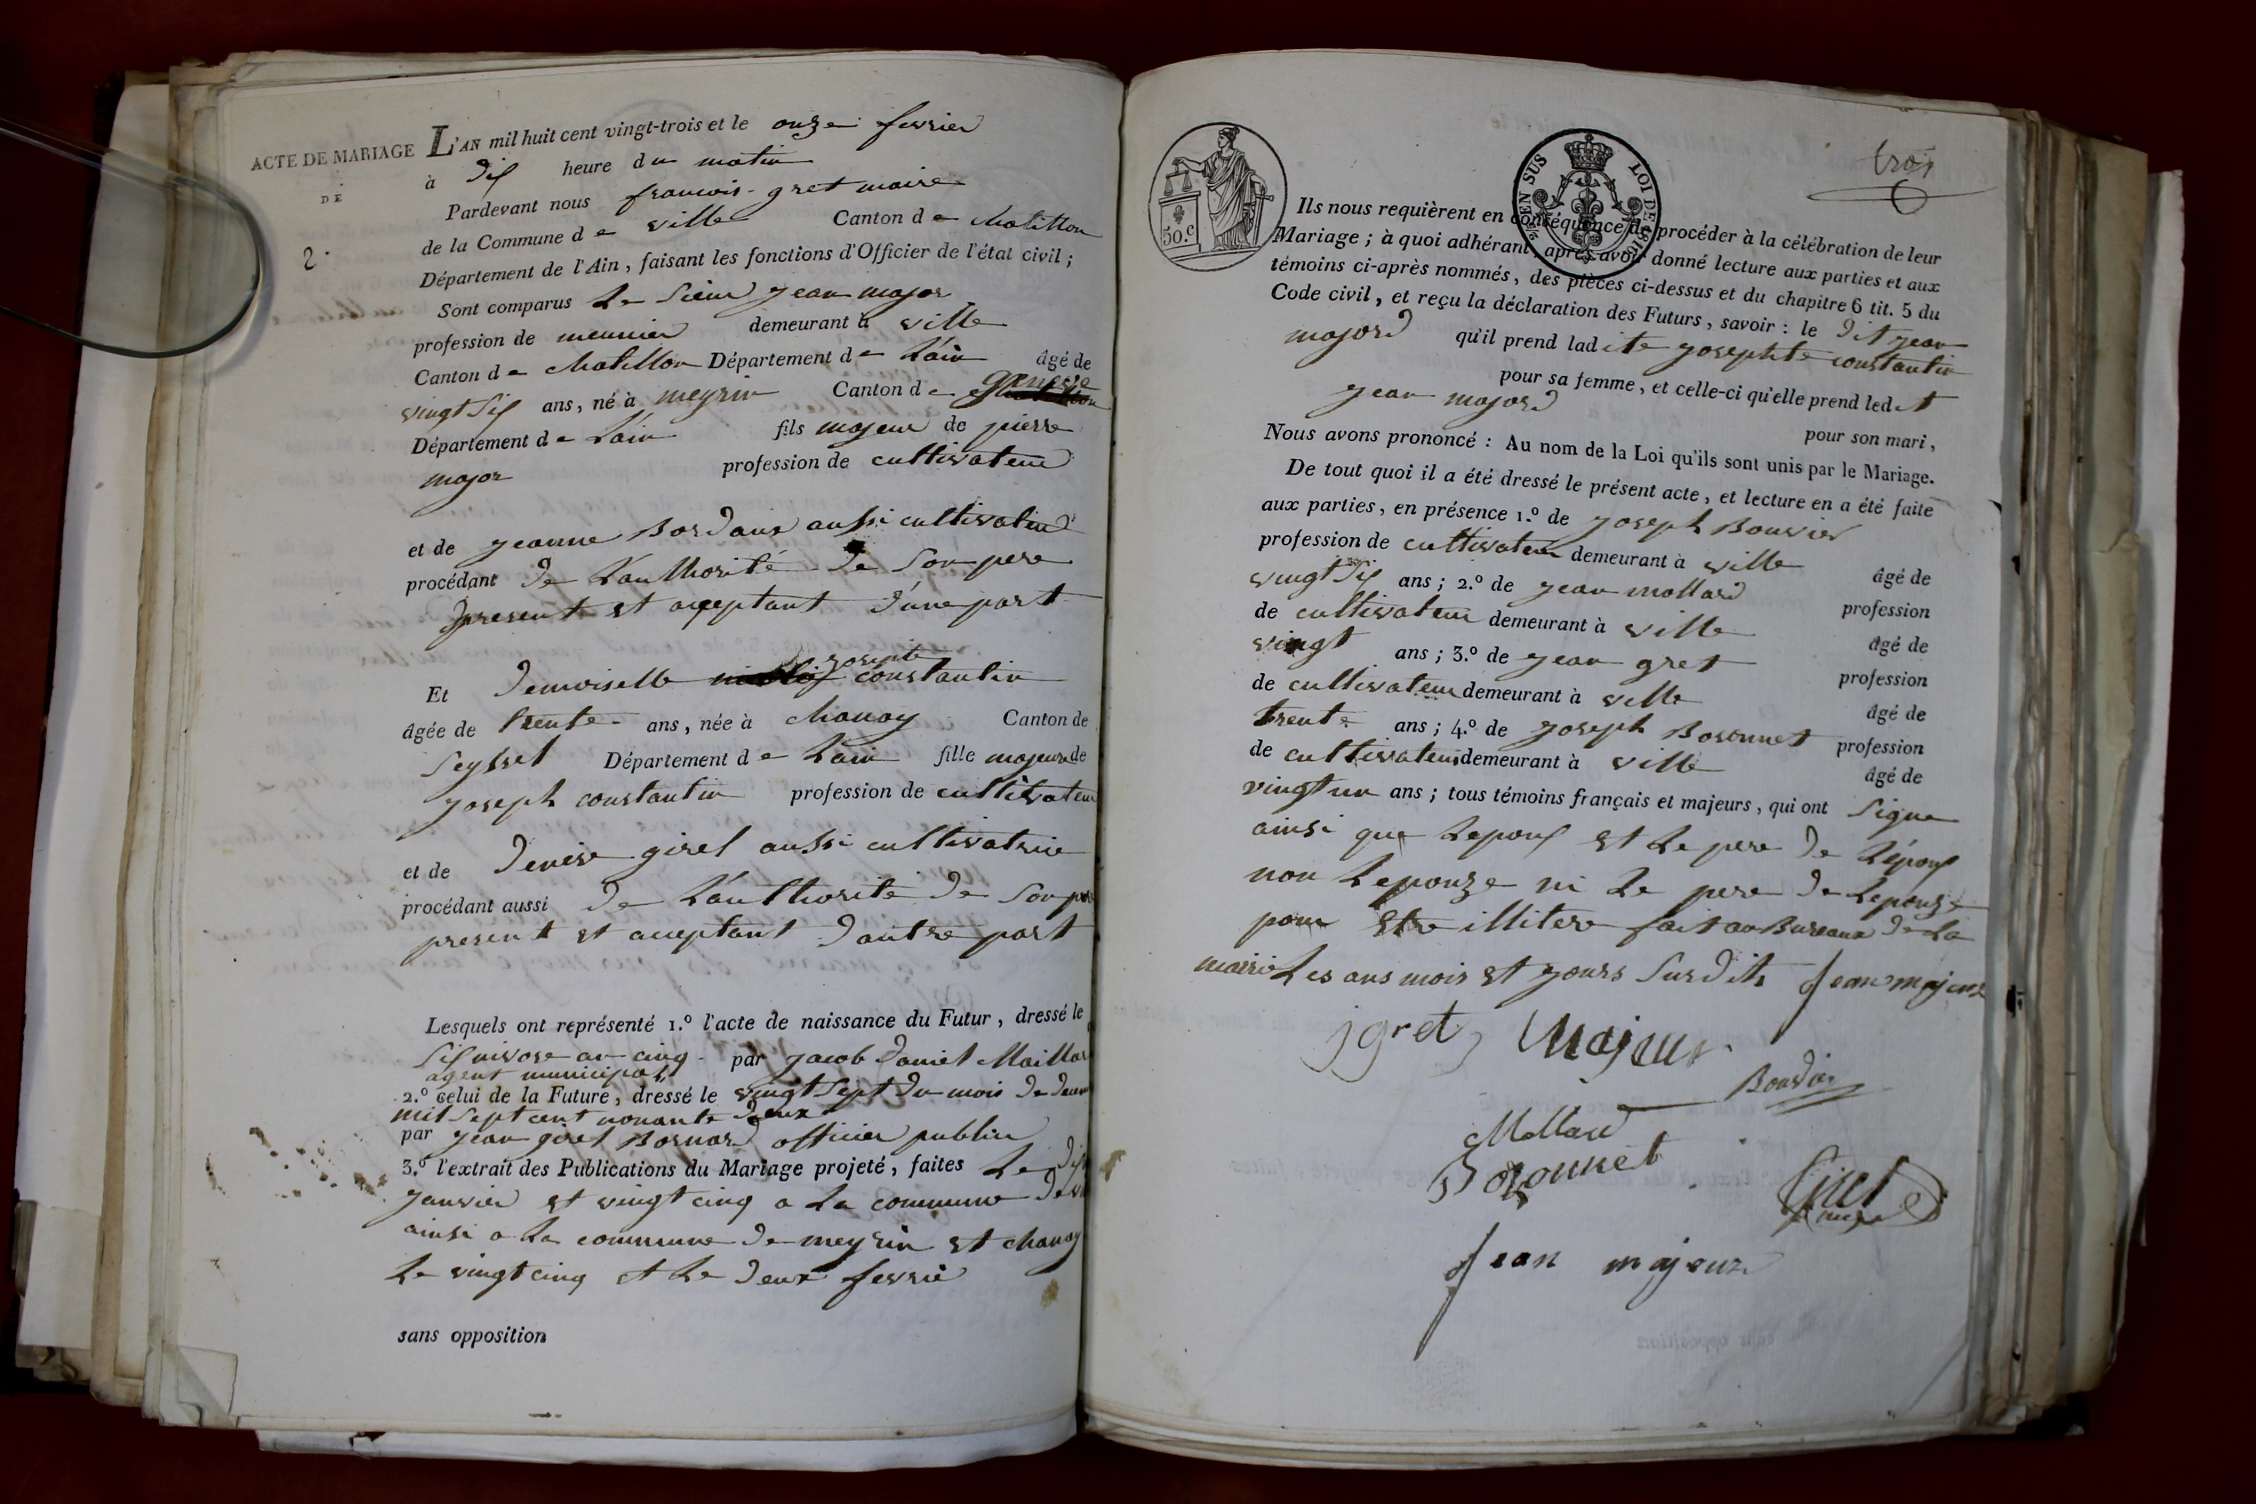 ACTE DE MARIAGE
DE
2.
L'AN mil huit cent vingt-trois et le onze fevrier
à dix heure du matin
Pardevant nous francois gret maire
de la Commune de ville Canton de chatillon
Département de l'Ain, faisant les fonctions d'Officier de l'état civil;
Sont comparus Le Sieur jean major
profession de meunier demeurant à ville
Canton de chatillon Département de L'ain âgé de
vingt six ans, né à meyrin Canton de geneve
Département de L'ain fils majeur de pierre
major profession de cultivateur
et de jeanne aussi cultivatur
procédant de L'authorité de Son pere
present et acceptant d'une part
Et demoiselle josephte constantin
âgée de trente ans, née à chanay Canton de
Seyssel Département de L'ain fille majeure de
joseph constantin profession de cultivateur
et de girel aussi cultivatrice
procédant aussi de L'authorité de Son pere
present et acceptant d'autre part
Lesquels ont représenté 1.º l'acte de naissance du Futur, dressé le
Six nivose an cinq par jacob daniel
agent municipal
2.º celui de la Future, dressé le vingt sept du mois de
mil sept cent nonante deux
par jean girel officier public
3.º l'extrait des Publications du Mariage projeté, faites Le dix
janvier et vingt cinq a La commune de
ainsi a La commune de meyrin et chanay
Le vingt cinq et Le deux fevrie
sans opposition
50.c
EN SUS
LOI DE
trois
Ils nous requièrent en conséquence de procéder à la célébration de leur
Mariage; à quoi adhérant, après avoir donné lecture aux parties et aux
témoins ci-après nommés, des pièces ci-dessus et du chapitre 6 tit. 5 du
Code civil, et reçu la déclaration des Futurs, savoir: le dit jean
majord qu'il prend ladite josephte constantin
pour sa femme, et celle-ci qu'elle prend ledit
jean majord pour son mari,
Nous avons prononcé: Au nom de la Loi qu'ils sont unis par le Mariage.
De tout quoi il a été dressé le présent acte, et lecture en a été faite
aux parties, en présence 1.º de joseph Bouvier
profession de cultivateur demeurant à ville âgé de
vingt six ans; 2.º de jean mollard profession
de cultivateur demeurant à ville âgé de
vingt ans; 3.º de jean gret profession
de cultivateur demeurant à ville âgé de
trente ans; 4.º de joseph Boronnet profession
de cultivateur demeurant à ville âgé de
vingt un ans; tous témoins français et majeurs, qui ont Signe
ainsi que Lepoux et Le pere de Lépoux
non Lepouze ni Le pere de Lepouze
pour Etre illitere fait au Bureaux de La
mairie Les ans mois et jours Susdits jean majeur
jgret majeur
Bouvier
Mollard
Boronnet
Gret
maire
jean majeur